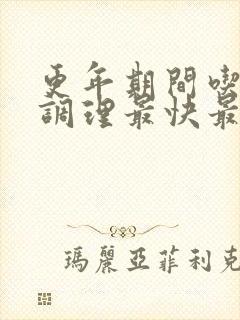 更年期間喫
調理最快最
瑪麗亞菲利克